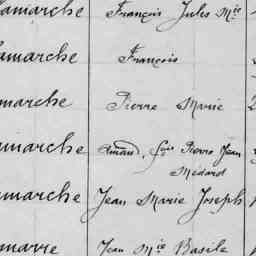 amarche François Jules Mie
amarche François
amarche Pierre Marie
amarche Amand, Pierre Jean
Médard
amarche Jean Marie Joseph
amarre Jean Mie Basile